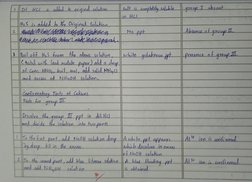 Dil HCl is added to original solution
Salt is completely soluble in HCl
group I absent
H₂S is added to the Original Solution
No ppt
Absence of group II
Boil off H₂S from the above solution
white gelatinous ppt.
presence of group III
(tested with lead acetate paper) add 2 drop
of Conc HNO₃, boil, cool, add solid NH₄Cl
and excess of NH₄OH solution
Confirmatory Tests of Cations
Tests for group III
Dissolve the group III ppt in dil HCl
and divide the solution into two parts
To the first part, add NaOH solution drop
by drop till in excess
A white ppt appears
which dissolves in excess
of NaOH solution
Al³⁺ ion is confirmed.
To the second part, add blue litmus solution
and add NH₄OH solution
A blue floating ppt
is obtained
Al³⁺ ion is confirmed.